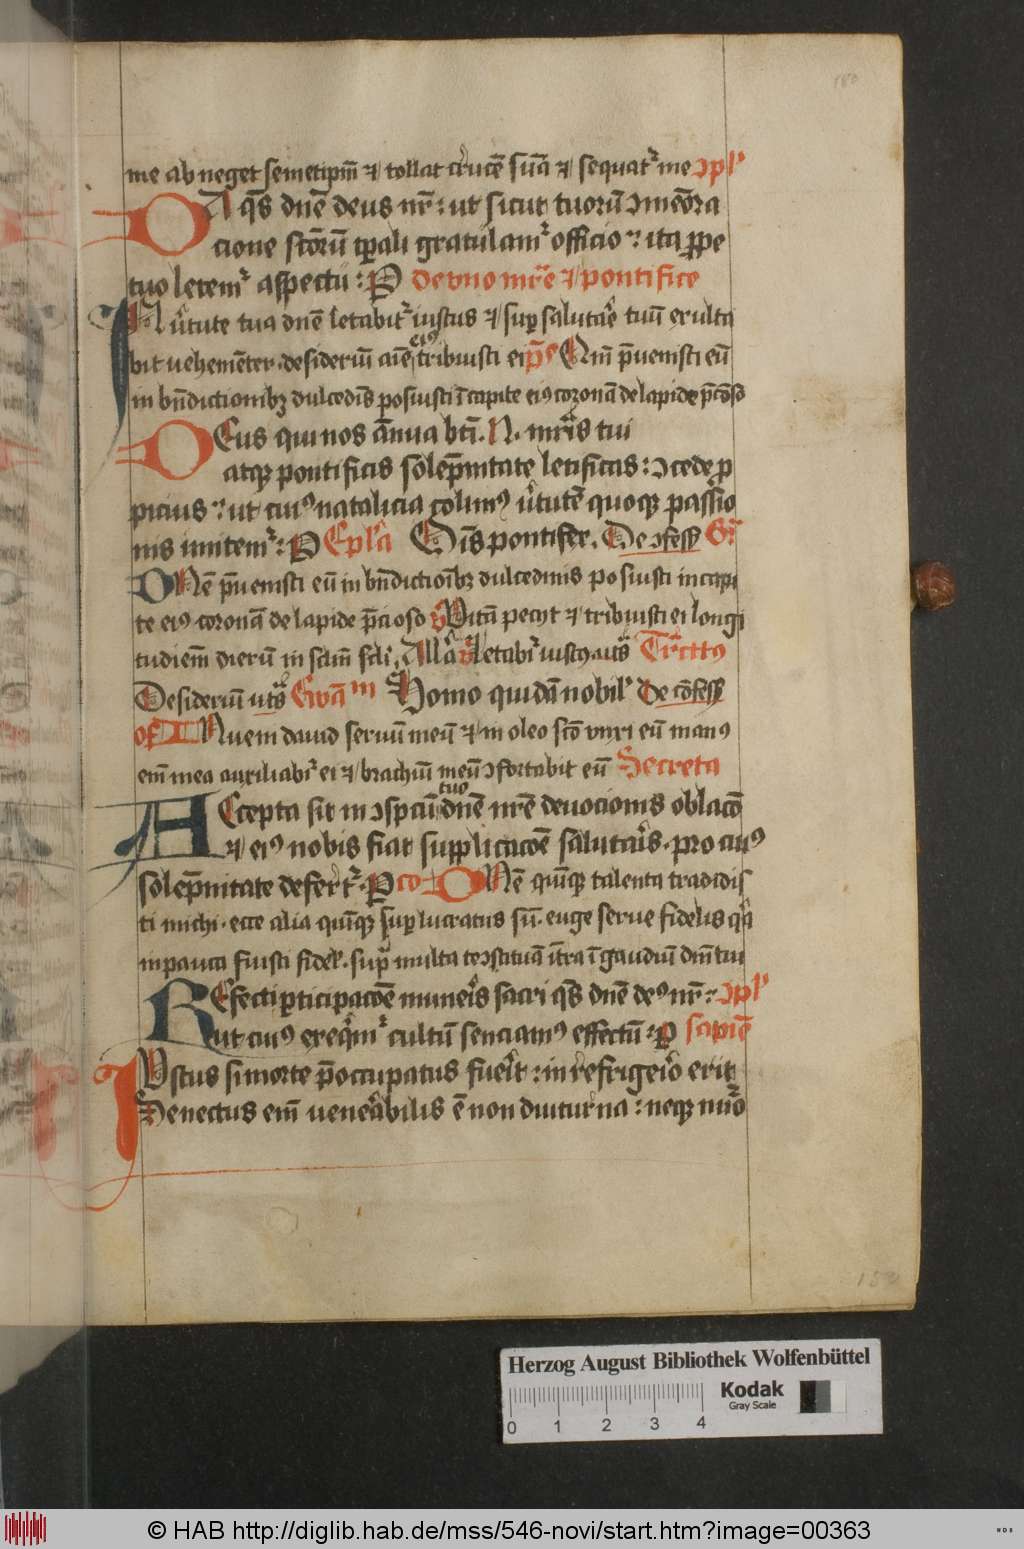 180
me ab neget semetipm̄ ⁊ tollat crucē suā ⁊ sequat᷑ me ɔpl᷑
DA qs̄ dnē deus nr̄ : ut sicut tuorū ɔmēora
cione sctōrū tp̄ali gratulam᷑ officio : ita ꝑpe
tuo letem᷑ aspectu : P de vno mr̄e ⁊ pontifice
IN v̄tute tua dnē letabit᷑ iustus ⁊ suꝑ salutar̄e tuū exulta
bit uehemēter . desideriū aīe eiꝰ tribuisti ei p̄s Qm̄ p̄uenisti eū
in bn̄dictionibꝫ dulcedīs posuisti ī capite eiꝰ coronā de lapide p̄cōso
DEus qui nos ānua btī . N . mr̄is tui
atqꝫ pontificis solēpnitate letificas : ɔcede ꝓ
picius : ut cuiꝰ natalicia colimꝰ v̄tutē quoqꝫ passīo
nis imitem᷑ : P Epl̄a Om̄s pontifex . De ɔfess᷑ Gr̄
DNē p̄uenisti eū in bn̄dictionibꝫ dulcedinis posuisti in capi
te eiꝰ coronā de lapide p̄cioso v̄ Vitā peciit ⁊ tribuisti ei longi
tudinē̄ dierū in sclm̄ scl̄i . All̄a v̄ letabit᷑ iustꝰ ut s᷑ Tr̄cttꝰ
Desideriū ut s᷑ Ewā m Homo quidā nobil᷑ De cōfess᷑
of INueni dauid seruū meū ⁊ in oleo scō vnxi eū manꝰ
em̄ mea auxiliabit᷑ ei ⁊ brachiū meū ɔfortabit eū Secreta
ACcepta sit in ɔspctū tuo dnē nr̄e deuocionis oblacō
⁊ eiꝰ nobis fiat supplicacōe salutar̄is . pro cuiꝰ
solēpnitate defert᷑ . P co DNē quīqꝫ talenta tradidis
ti michi . ecce alia quīqꝫ suꝑlucratus sū . euge serue fidelis qr̄
in pauca fuisti fidel᷑ . supra multa te ɔstituā ītra ī gaudiū dn̄i tui
REfecti ꝑticipacōe muner̄is sacri qs̄ dnē deꝰ nr̄ : ɔpl᷑
ut cuiꝰ exeqm̄᷑ cultū senciamꝰ effectū : P sapīe
IVstus si morte p̄occupatus fuer̄it : in refriger̄io erit
Senectus em̄ uener̄abilis ē non diuturna : neqꝫ nūr̄o
180
Herzog August Bibliothek Wolfenbüttel
Kodak
Gray Scale
0 1 2 3 4
© HAB http://diglib.hab.de/mss/546-novi/start.htm?image=00363
HAB